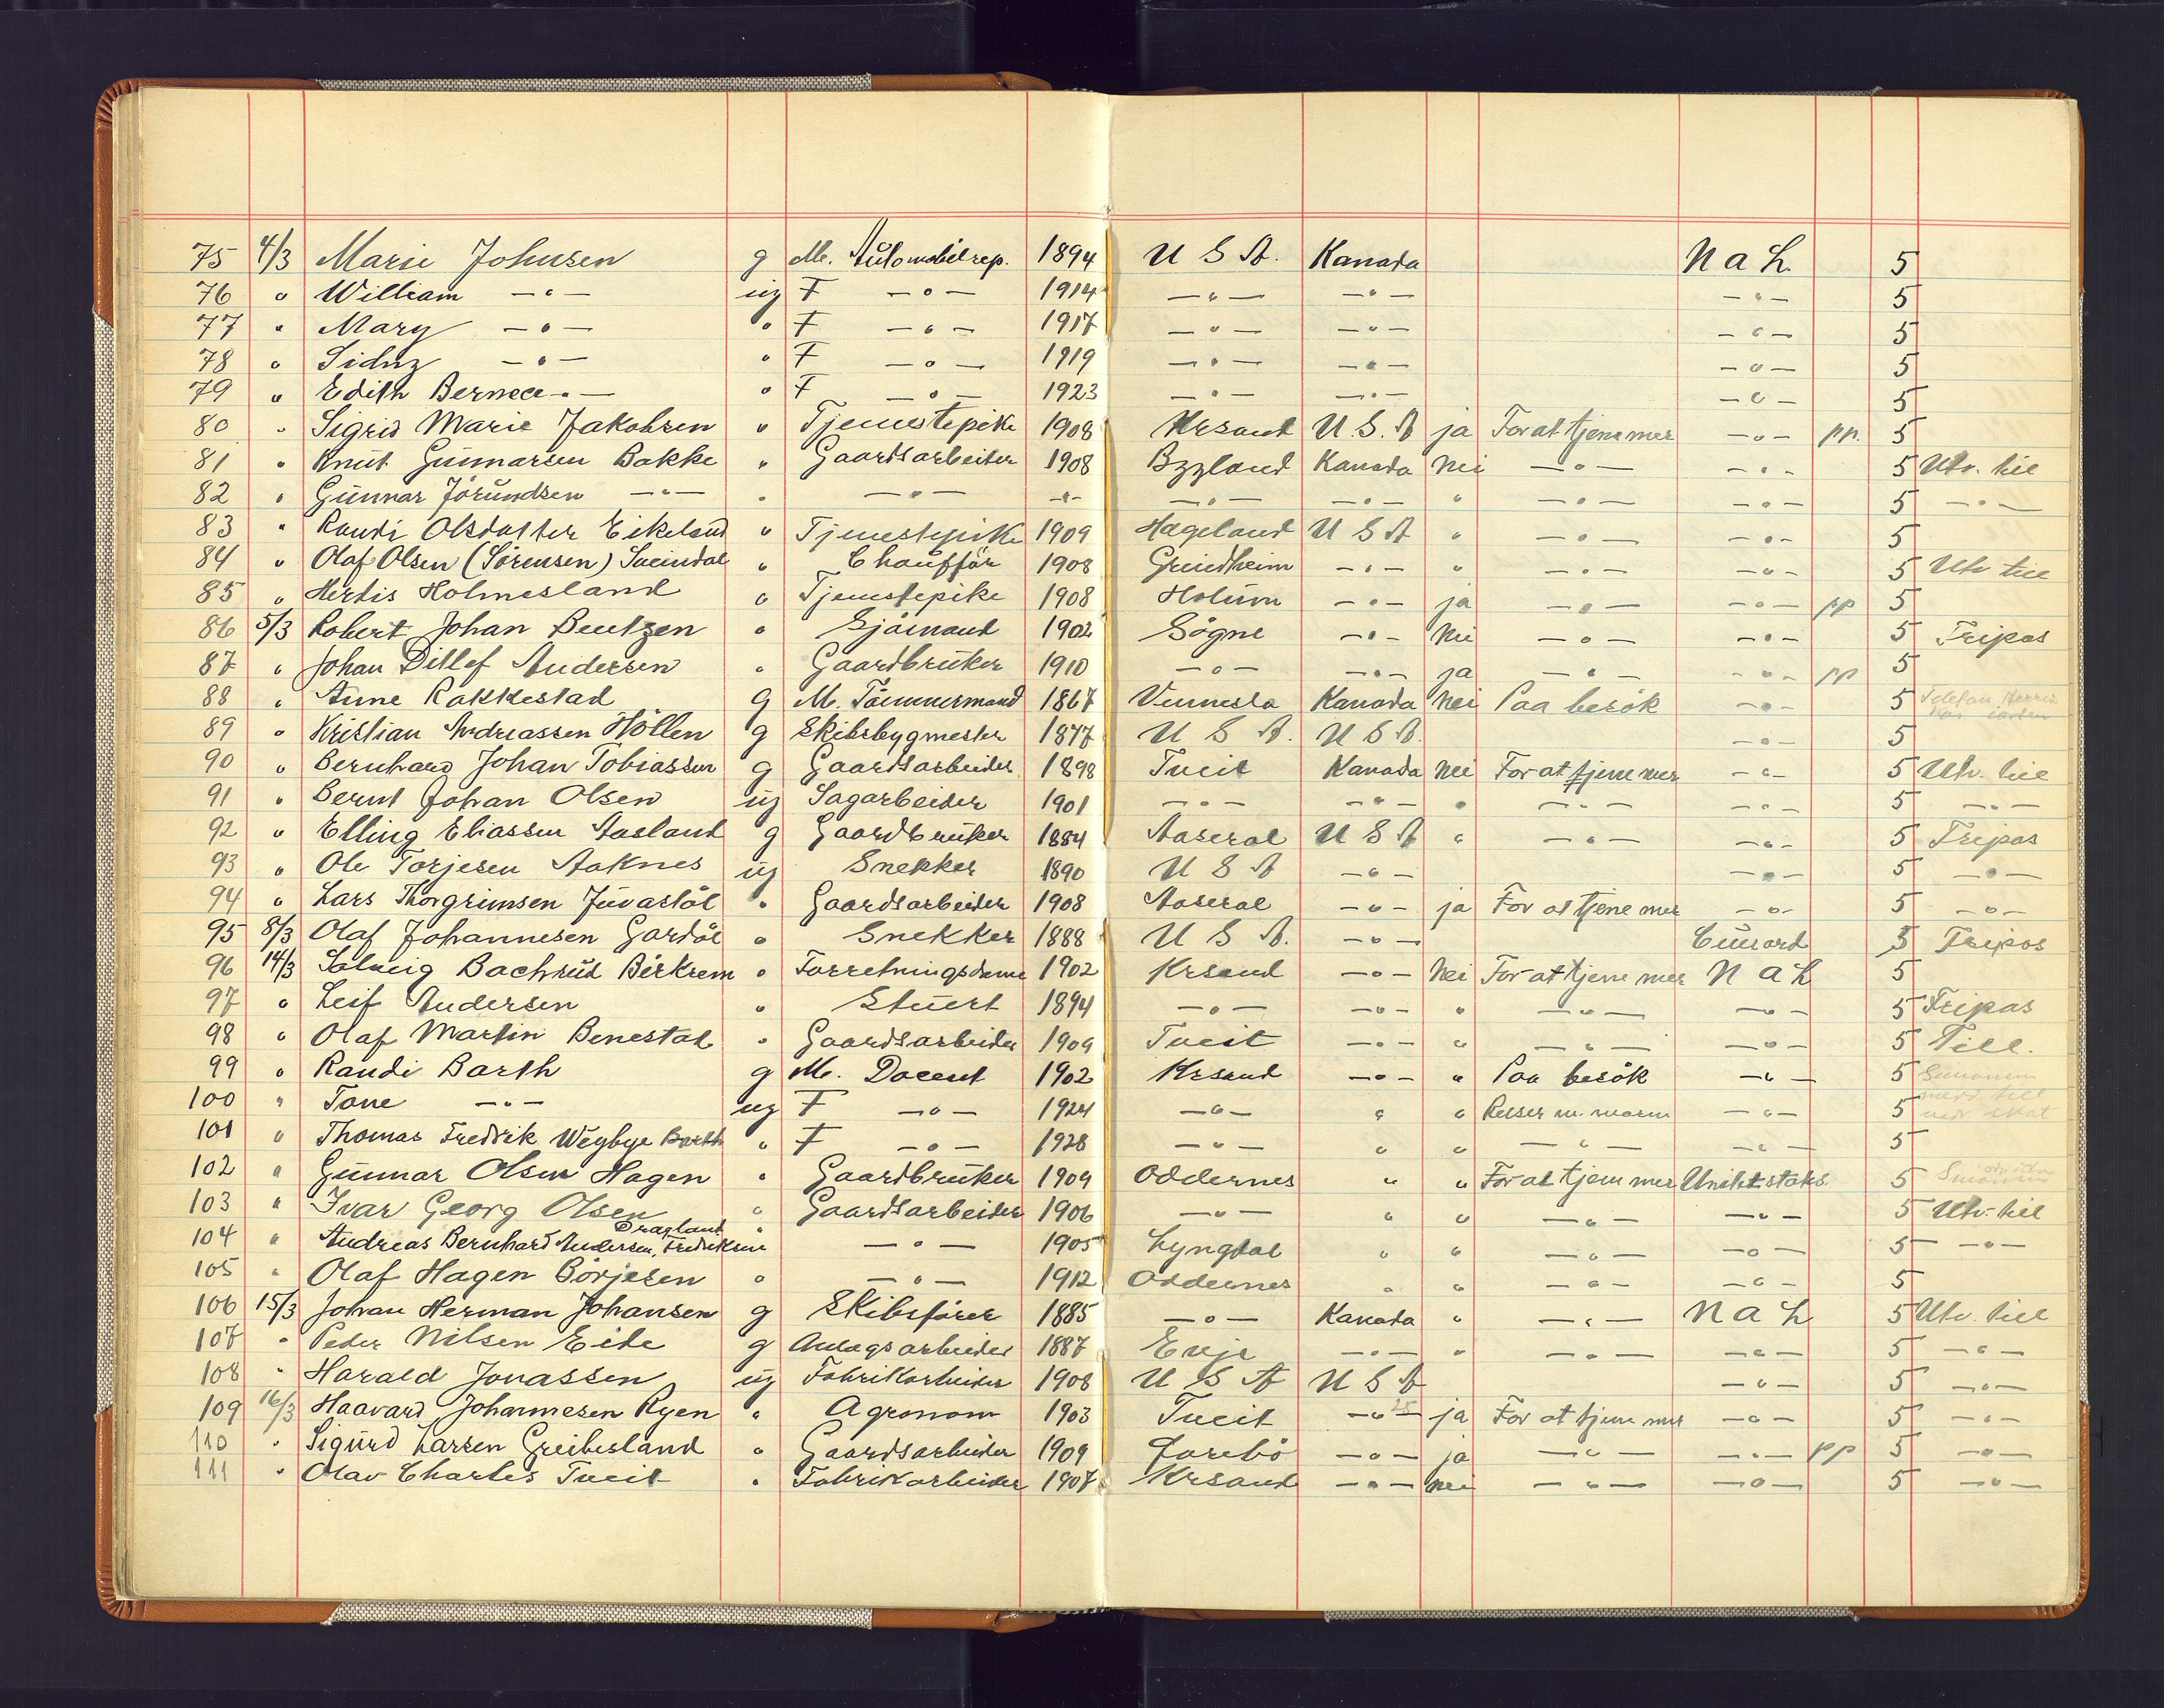 75 4/3 Marie Johnsen g M. Automobilrep. 1894 U S A. Kanada N a L. 5
76 " William — " — ug F — " — 1914 — " — — " — — " — 5
77 " Mary — " — " F — " — 1917 — " — — " — — " — 5
78 " Sidny — " — " F — " — 1919 — " — — " — — " — 5
79 " Edith Bernece — " — " F — " — 1923 — " — — " — — " — 5
80 " Sigrid Marie Jakobsen " Tjenestepike 1908 Krsand U.S.A ja For at tjene mer — " — pp. 5
81 " Knut Gunnarsen Bakke " Gaardsarbeider 1908 Bygland Kanada Nei — " — — " — 5 Utv. till
82 " Gunnar Jörundsen — " — " — " — — " — — " — — " — " — " — — " — 5 — " —
83 " Randi Olsdatter Eikeland " Tjenestepike 1909 Hægeland U S A " — " — — " — 5
84 " Olaf Olsen (Sörensen) Sveindal " Chaufför 1908 Grindheim — " — " — " — — " — 5 Utv till
85 " Herdis Holmesland " Tjenestepike 1908 Holum — " — ja — " — — " — pp 5
86 5/3 Robert Johan Bentzen " Sjömand 1902 Sögne — " — Nei — " — — " — 5 Tripas
87 " Johan Ditlef Andersen " Gaardbruker 1910 — " — — " — ja — " — — " — pp 5
88 " Anne Rakkestad g M. Tömmermand 1867 Vennesla Kanada Nei Paa besök — " — 5 Telefon
89 " Kristian Andreassen Höllen g Skibsbygmester 1877 U S A. U S A. — " — 5
90 " Bernhard Johan Tobiassen g Gaardsarbeider 1898 Tveit Kanada Nei For at tjene mer — " — 5 Utv. till
91 " Bernt Johan Olsen ug Sagarbeider 1901 — " — — " — " — " — — " — 5 — " —
92 " Elling Eliassen Aasland g Gaardbruker 1884 Aaseral U S A " — " — — " — 5 Tripas
93 " Ole Torjesen Aaknes ug Snekker 1890 U S A — " — — " — 5 — " —
94 " Lars Thorgrimsen Juvastöl " Gaardsarbeider 1908 Aaseral — " — ja For at tjene mer — " — 5 — " —
95 8/3 Olaf Johannesen Gardöl " Snekker 1888 U S A. — " — Cunard 5 Tripos
96 14/3 Solveig Bachrud Birkrem " Forretningsdame 1902 Krsand — " — Nei For at tjene mer N a L 5
97 " Leif Andersen " Stuert 1894 — " — — " — " — " — — " — 5 Tripas
98 " Olaf Martin Benestad " Gaardsarbeider 1909 Tveit — " — " — " — — " — 5 Till.
99 " Randi Barth g M. Docent 1902 Krsand — " — " Paa besök — " — 5
100 " Tone — " — ug F — " — 1924 — " — " " Reiser m. moren — " — 5
101 " Thomas Fredrik Weybye Barth " F — " — 1928 — " — " " — " — — " — 5
102 " Gunnar Olsen Hagen " Gaardbruker 1909 Oddernes " " For at tjene mer Unit. stats. 5
103 " Ivar Georg Olsen " Gaardsarbeider 1906 — " — " " — " — — " — 5 Utv. till
104 " Andreas Bernhard Andersen, Fredriksen Dragland " — " — 1905 Lyngdal " " — " — — " — 5 — " —
105 " Olaf Hagen Börjesen " — " — 1912 Oddernes " " — " — — " — 5
106 15/3 Johan Herman Johansen g Skibsförer 1885 — " — Kanada " — " — N a L 5 Utv. till
107 " Peder Nilsen Eide g Anlægsarbeider 1887 Evje — " — " — " — — " — 5 — " —
108 " Harald Jonassen ug Fabrikarbeider 1908 U S A U S A — " — 5 — " —
109 16/3 Haavard Johannesen Ryen " Agronom 1903 Tveit — " — ja For at tjene mer — " — 5 — " —
110 " Sigurd Larsen Greibesland " Gaardsarbeider 1909 — " — ja — " — — " — pp 5 — " —
111 " Olav Charles Tveit " Fabrikarbeider 1907 Krsand — " — nei — " — — " — 5 — " —